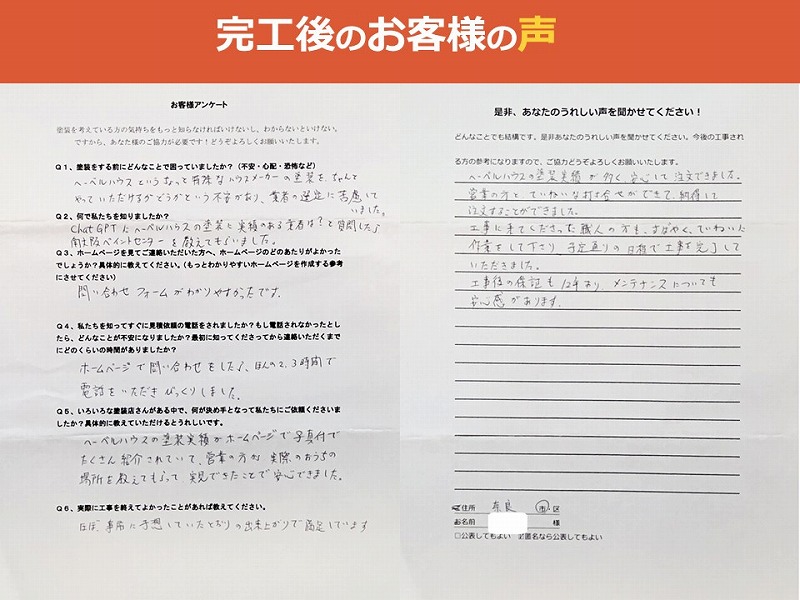 完工後のお客様の声
お客様アンケート
塗装を考えている方の気持ちをもっと知らなければいけないし、わからないといけない。
ですから、あなた様のご協力が必要です！どうぞよろしくお願いいたします。
Ｑ１、塗装をする前にどんなことで困っていましたか？（不安・心配・恐怖など）
ヘーベルハウスというちょっと特殊なハウスメーカーの塗装を、ちゃんと
やっていただけるかどうかという不安があり、業者の選定に苦慮して
いました。
Ｑ２、何で私たちを知りましたか？
ChatGPTにヘーベルハウスの塗装に実績のある業者は？と質問したら
南大阪ペイントセンターを教えてもらいました。
Ｑ３、ホームページを見てご連絡いただいた方へ、ホームページのどのあたりがよかった
でしょうか？具体的に教えてください。（もっとわかりやすいホームページを作成する参考
にさせてください）
問い合わせフォームがわかりやすかったです。
Ｑ４、私たちを知ってすぐに見積依頼の電話をされましたか？もし電話されなかったとし
たら、どんなことが不安になりましたか？最初に知ってくださってから連絡いただくまで
にどのくらいの時間がありましたか？
ホームページで問い合わせをしたら、ほんの2、3時間で
電話をいただきびっくりしました。
Ｑ５、いろいろな塗装店さんがある中で、何が決め手となって私たちにご依頼くださいま
したか？具体的に教えていただけるとうれしいです。
ヘーベルハウスの塗装実績がホームページで写真付で
たくさん紹介されていて、営業の方から実際のおうちの
場所を教えてもらって実見できたことで安心できました。
Ｑ６、実際に工事を終えてよかったことがあれば教えてください。
ほぼ、事前に予想していたとおりの出来上がりで満足しています
是非、あなたのうれしい声を聞かせてください！
どんなことでも結構です。是非あなたのうれしい声を聞かせてください。今後の工事され
る方の参考になりますので、ご協力どうぞよろしくお願いいたします。
ヘーベルハウスの塗装実績が多く、安心して注文できました。
営業の方とていねいな打ち合せができて、納得して
注文することができました。
工事に来てくださった職人の方も、すばやく、ていねいに
作業をして下さり 予定通りの日程で工事を完了して
いただきました。
工事後の保証も12年あり、メンテナンスについても
安心感があります。
ご住所 奈良 市・区
お名前 様
□公表してもよい ☑匿名なら公表してもよい